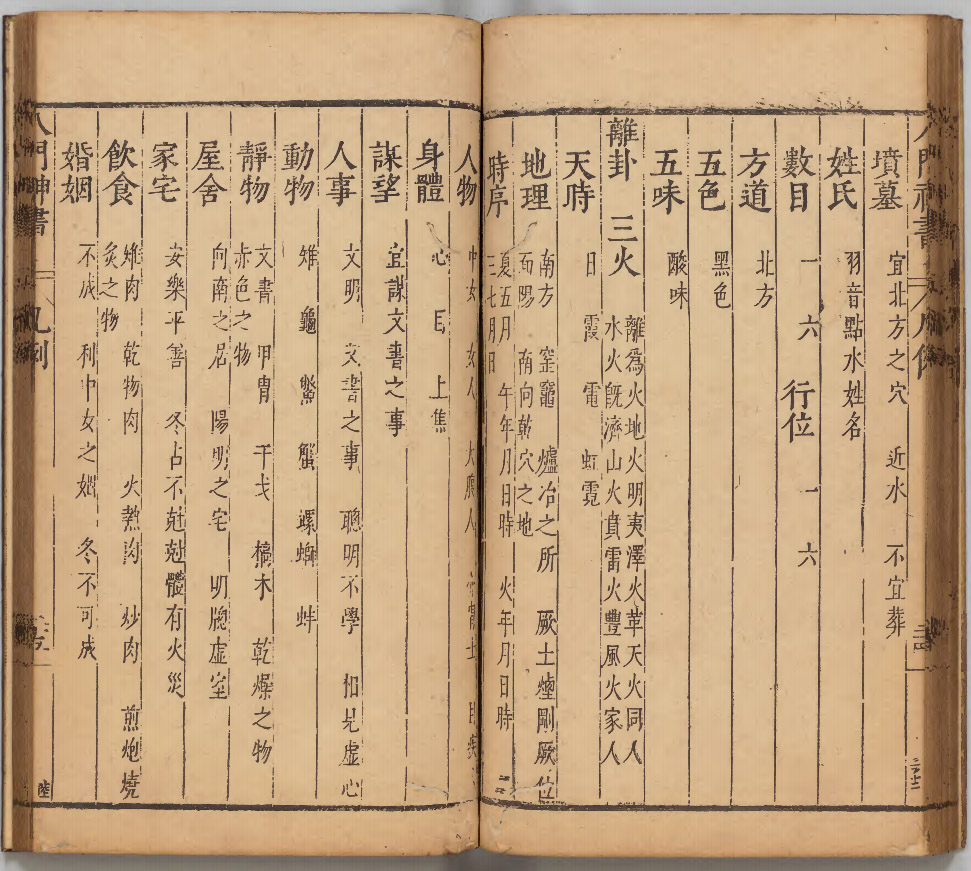 墳墓 宜北方之穴 近水 不宜葬
姓氏 羽音點水姓名
數目 一 六 行位 一 六
方道 北方
五色 黑色
五味 酸味
離卦 三火 離爲火地火明夷澤火革天火同人
水火旣濟山火賁雷火豐風火家人
天時 日 霞 電 虹 霓
地理 南方 窑竈 爐冶之所 厥土 剛厥位
面陽 南向乾穴之地
時序 夏五月 午年月日時 火年月日時
三七月日
人物 中女 女人 大腹人 目疾
身體 心 目 上焦
謀望 宜謀文書之事
人事 文明 文書之事 聰明不學 相見虛心
動物 雉 龜 鱉 蟹 螺 蚌
靜物 文書 甲冑 干戈 槁木 乾燥之物
赤色之物
屋舍 向南之居 陽明之宅 明牕虛室
家宅 安樂平善 冬占不尅尅體有火災
飲食 雉肉 乾物肉 火熱肉 炒肉 煎炮燒
炙之物
婚姻 不成 利中女之姻 冬不可成
陸